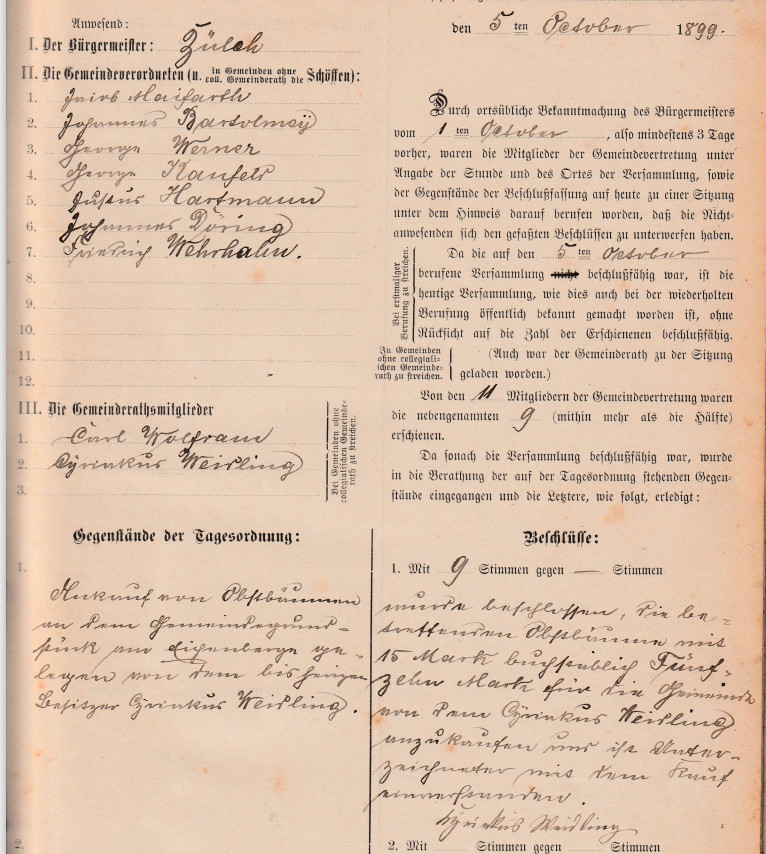 Anwesend:
I. Der Bürgermeister: Zülch
II. Die Gemeindeverordneten (u. in Gemeinden ohne coll. Gemeinderath die Schöffen):
1. Maifarth
2. Johannes Bartolmey
3. George Werner
4. George Kaufeld
5. Justus Hartmann
6. Johannes Döring
7. Friedrich Wehrhahn.
8.
9.
10.
11.
12.
III. Die Gemeinderathsmitglieder
1. Carl Wolfram
2. Cyriakus Weidling
3.
Bei Gemeinden ohne
collegialischen Gemeinde-
rath zu streichen.
den 5 ten October 1899.
Durch ortsübliche Bekanntmachung des Bürgermeisters
vom 1 ten October, also mindestens 3 Tage
vorher, waren die Mitglieder der Gemeindevertretung unter
Angabe der Stunde und des Ortes der Versammlung, sowie
der Gegenstände der Beschlußfassung auf heute zu einer Sitzung
unter dem Hinweis darauf berufen worden, daß die Nicht-
anwesenden sich den gefaßten Beschlüssen zu unterwerfen haben.
Bei erstmaliger
Berufung zu streichen.
Da die auf den 5 ten October
berufene Versammlung nicht beschlußfähig war, ist die
heutige Versammlung, wie dies auch bei der wiederholten
Berufung öffentlich bekannt gemacht worden ist, ohne
Rücksicht auf die Zahl der Erschienenen beschlußfähig.
In Gemeinden
ohne collegiali-
schen Gemeinde-
rath zu streichen.
(Auch war der Gemeinderath zu der Sitzung
geladen worden.)
Von den 11 Mitgliedern der Gemeindevertretung waren
die nebengenannten 9 (mithin mehr als die Hälfte)
erschienen.
Da sonach die Versammlung beschlußfähig war, wurde
in die Berathung der auf der Tagesordnung stehenden Gegen-
stände eingegangen und die Letztere, wie folgt, erledigt:
Gegenstände der Tagesordnung:
1.
Ankauf von Obstbäumen
an dem Gemeindegrund-
stück am Eichenberge ge-
legen von dem bisherigen
Besitzer Cyriakus Weidling.
2.
Beschlüsse:
1. Mit 9 Stimmen gegen — Stimmen
wurde beschlossen, die be-
treffenden Obstbäume mit
15 Mark buchstäblich Fünf-
zehn Mark für die Gemeinde
von dem Cyriakus Weidling
anzukaufen und ist Unter-
zeichneter mit dem Kauf
einverstanden.
Kyriakus Weidling
2. Mit Stimmen gegen Stimmen